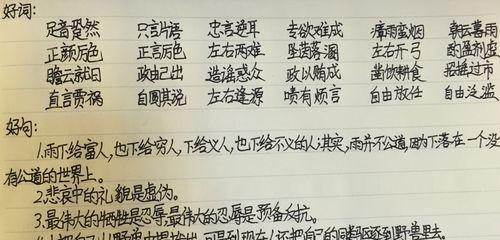 好词:
足音跫然 只言片语 忠言逆耳 专欲难成 瘴雨蛮烟 朝云暮雨
正颜厉色 正言厉色 左右两难 坠茵落溷 左右开弓 酌盈剂虚
瞻云就日 政由己出 造谣惑众 政以贿成 凿饮耕食 招摇过市
直言贾祸 自圆其说 左右逢源 啧有烦言 自由放任 自由泛滥
好句:
1.雨下给富人,也下给穷人,下给义人,也下给不义的人;其实,雨并不公道,因为下落在一个没
有公道的世上。
2.悲哀中的礼貌是虚伪。
3.最伟大的牺牲是忍辱,最伟大的忍辱是预备反抗。